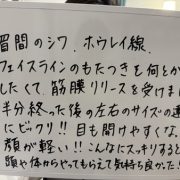 眉間のシワ、ホウレイ線、
フェイスラインのもたつきを何とか
したくて、筋膜リリースを受けま
半分終った後の左右のサイズの違
にビックリ!! 目も開けやすくな
顔が軽い!! こんなにスッキリすると
頭や体からやってもらえて気持ち良かった